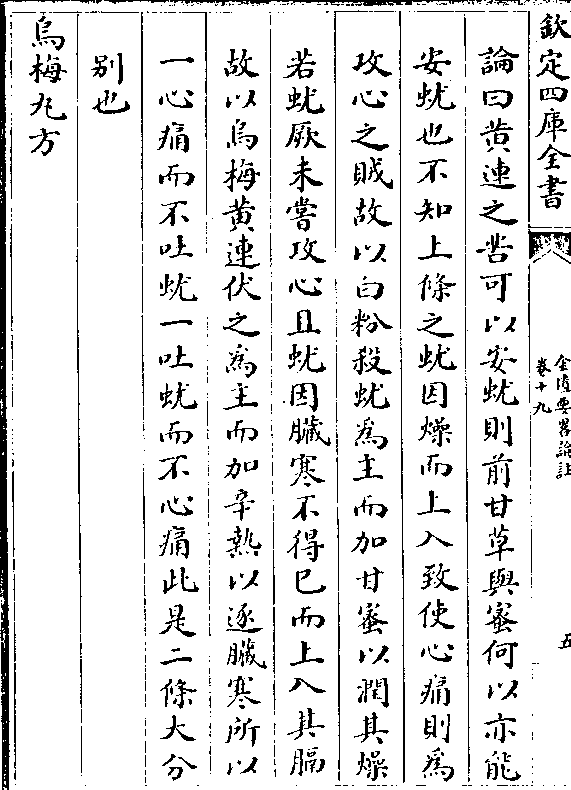 欽定四庫全書
金匱要畧論註
卷十九
五
論曰黄連之苦可以安蚘則前甘草與蜜何以亦能
安蚘也不知上條之蚘因燥而上入致使心痛則為
攻心之賊故以白粉殺蚘為主而加甘蜜以潤其燥
若蚘厥未嘗攻心且蚘因臟寒不得已而上入其膈
故以烏梅黄連伏之為主而加辛熱以逐臟寒所以
一心痛而不吐蚘一吐蚘而不心痛此是二條大分
别也
烏梅丸方